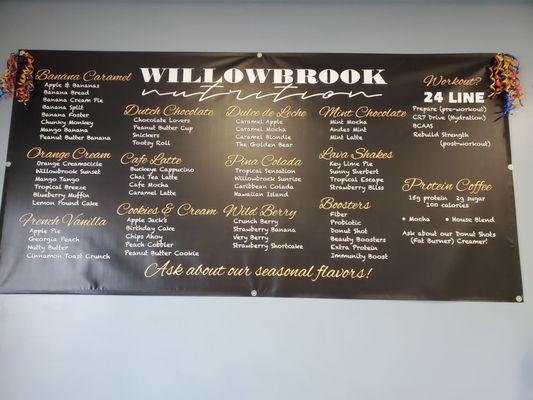 WILLOWBROOK
nutrition
Banana Caramel
Apple & Bananas
Banana Bread
Banana Cream Pie
Banana Split
Banana Foster
Chunky Monkey
Mango Banana
Peanut Butter Banana
Orange Cream
Orange Creamscicle
Willowbrook Sunset
Mango Tango
Tropical Breeze
Blueberry Muffin
Lemon Pound Cake
French Vanilla
Apple Pie
Georgia Peach
Nutty Butter
Cinnamon Toast Crunch
Dutch Chocolate
Chocolate Lovers
Peanut Butter Cup
Snickers
Tootsy Roll
Cafe Latte
Buckeye Cappucino
Chai Tea Latte
Cafe Mocha
Caramel Latte
Cookies & Cream
Apple Jack's
Birthday Cake
Chips Ahoy
Peach Cobbler
Peanut Butter Cookie
Dulce de Leche
Caramel Apple
Caramel Mocha
Caramel Blondie
The Golden Bear
Pina Colada
Tropical Sensation
Willowbrook Sunrise
Caribbean Colada
Hawaiian Island
Wild Berry
Crunch Berry
Strawberry Banana
Very Berry
Strawberry Shortcake
Mint Chocolate
Mint Mocha
Andes Mint
Mint Latte
Lava Shakes
Key Lime Pie
Sunny Sherbert
Tropical Escape
Strawberry Bliss
Boosters
Fiber
Probiotic
Donut Shot
Beauty Boosters
Extra Protein
Immunity Boost
Workout?
24 LINE
Prepare (pre-workout)
CR7 Drive (Hydration)
BCAAS
Rebuild Strength
(post-workout)
Protein Coffee
15g protein 2g sugar
100 calories
• Mocha • House Blend
Ask about our Donut Shots
(Fat Burner) Creamer!
Ask about our seasonal flavors!